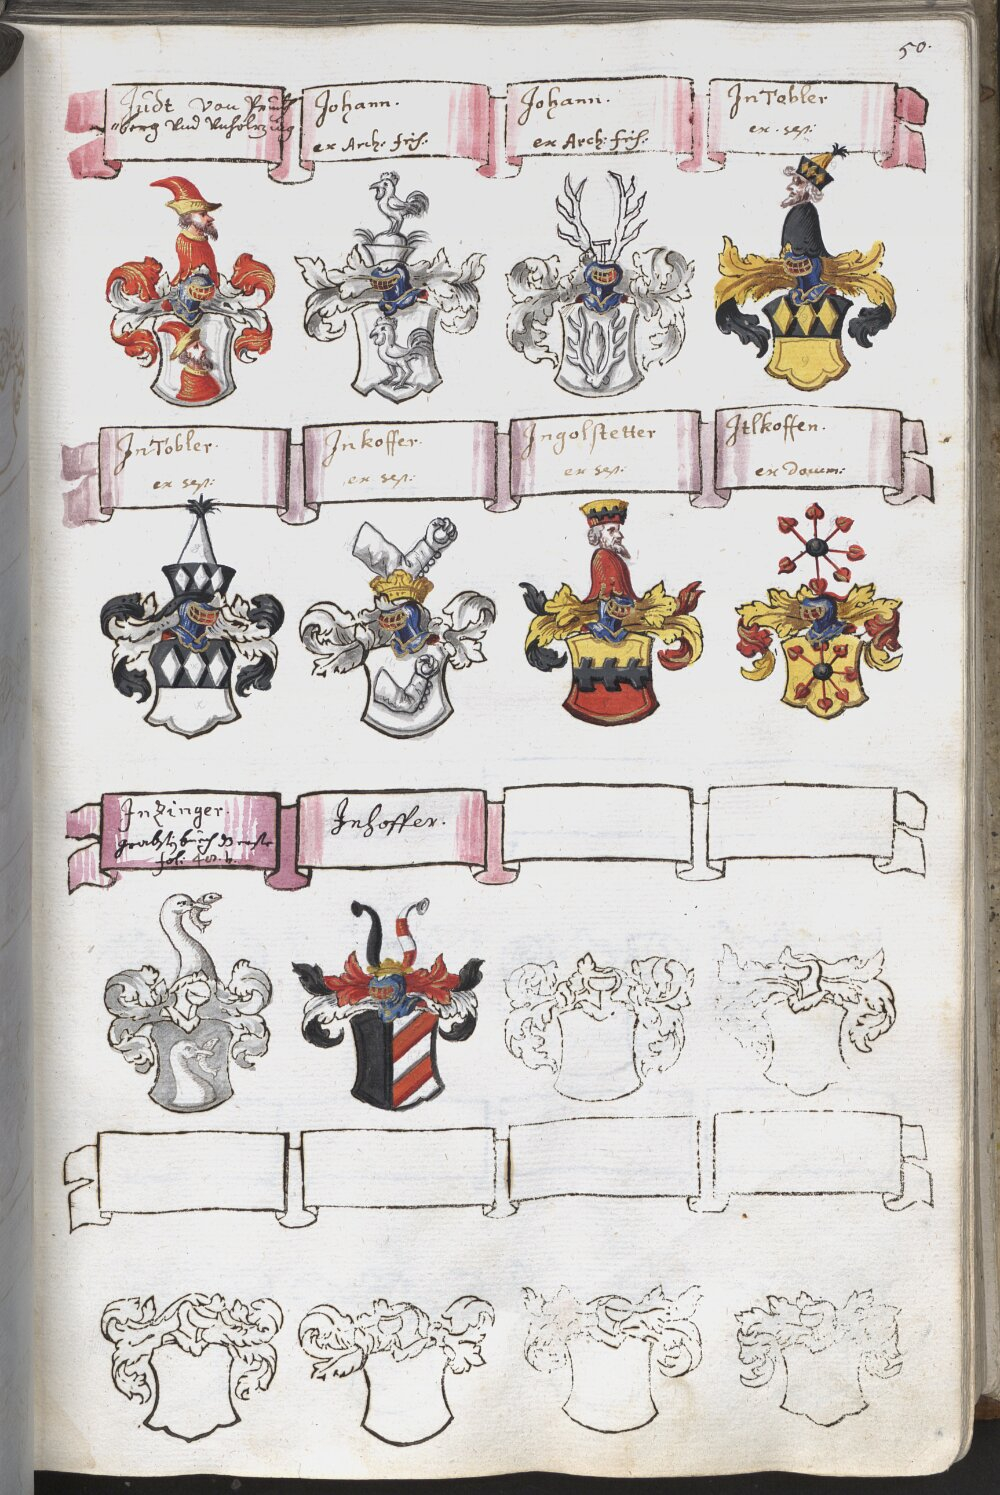 50.
Judt von Pruckh
berg Vnd
Johann.
ex Arch: fris:
Johann.
ex Arch: fris:
InTobler
ex. sep:
InTobler.
ex sep:
Inkoffer.
ex sep:
Ingolstetter
ex sep:
Itlkoffen.
ex Docum:
Inzinger.
fol:
Inhoffer.